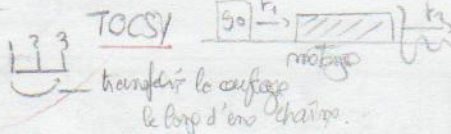 TOCSY
90 t₁ t₂
1 2 3
mélange
transfert le couplage
le long d'une chaîne.